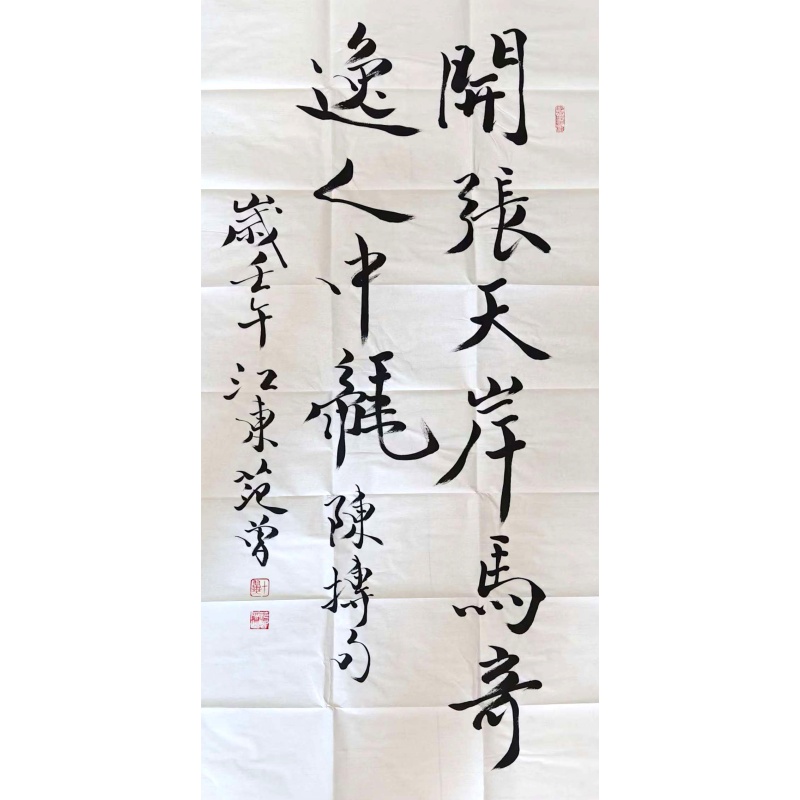 開張天岸馬奇
逸人中龍陳摶句
歲壬午江東范曾